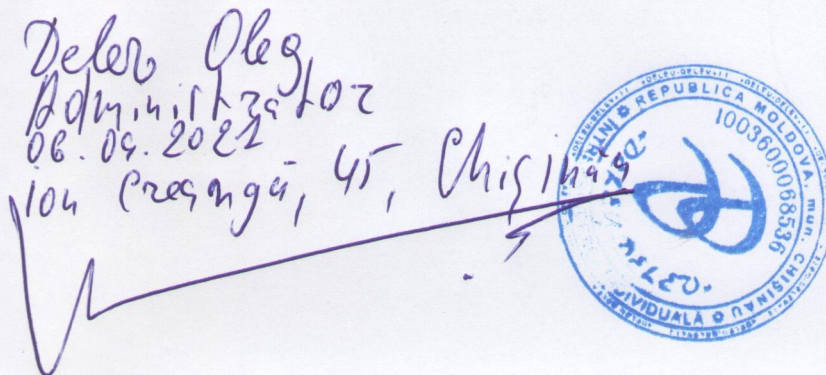 Deleu Oleg
Administrator
06.09.2021
Ion Creangă, 45, Chișinău
REPUBLICA MOLDOVA, mun. CHIȘINĂU
1003600068536
INDIVIDUALĂ